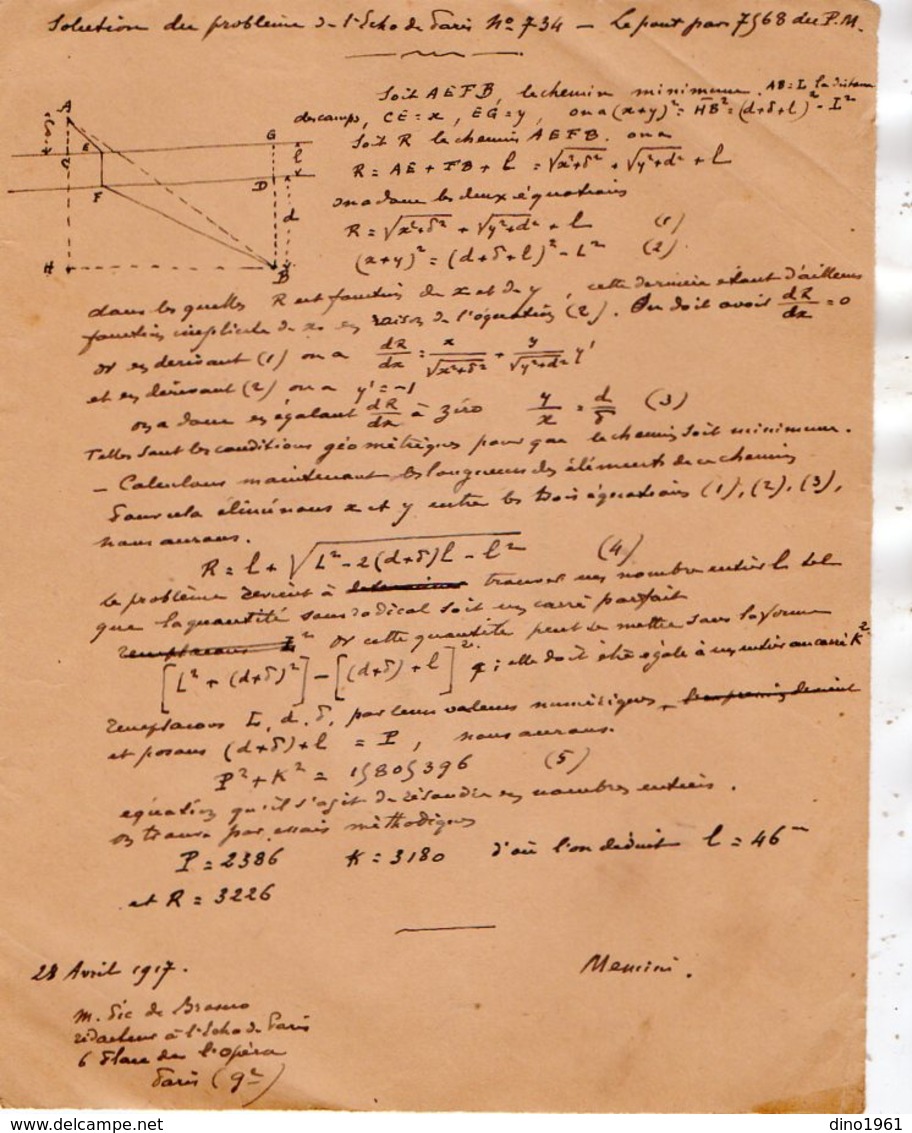 Solution du problème de l'Echo de Paris No 734 — Le pont par 7568 du P.M.
Soit AEFB, le chemin minimum. AB = L la distance
des camps, CE = x, EG = y, on a (x+y)² = HB² = (d+δ+l)² - L²
Soit R le chemin AEFB. on a
R = AE + FB + l = √x²+δ² + √y²+d² + l
on a donc les deux équations
R = √x²+δ² + √y²+d² + l (1)
(x+y)² = (d+δ+l)² - L² (2)
A
δ
C
E
G
l
F
D
d
H
B
dans lesquelles R est fonction de x et de y, cette dernière étant d'ailleurs
fonction implicite de x en raison de l'équation (2). On doit avoir dR/dx = 0
or en dérivant (1) on a dR/dx = x/√x²+δ² + y/√y²+d² y'
et en dérivant (2) on a y' = -1
on a donc en égalant dR/dx à zéro y/x = d/δ (3)
Telles sont les conditions géométriques pour que le chemin soit minimum.
— Calculons maintenant les longueurs des éléments de ce chemin
pour cela éliminons x et y entre les trois équations (1), (2), (3),
nous aurons.
R = l + √L² - 2(d+δ)l - l² (4)
le problème revient à trouver un nombre entier l tel
que la quantité sous radical soit un carré parfait
or cette quantité peut se mettre sous la forme
[L² + (d+δ)²] - [(d+δ) + l]² ; elle doit être égale à un entier au carré K²
remplaçons L, d, δ, par leurs valeurs numériques,
et posons (d+δ)+l = P, nous aurons.
P² + K² = 15805396 (5)
équation qu'il s'agit de résoudre en nombres entiers.
on trouve par essais méthodiques
P = 2386 K = 3180 d'où l'on déduit l = 46m
et R = 3226
28 Avril 1917.
Mencini.
M. Pic de Brasero
rédacteur à l'Echo de Paris
6 Place de l'opéra
Paris (9e)
delcampe.net
dino1961